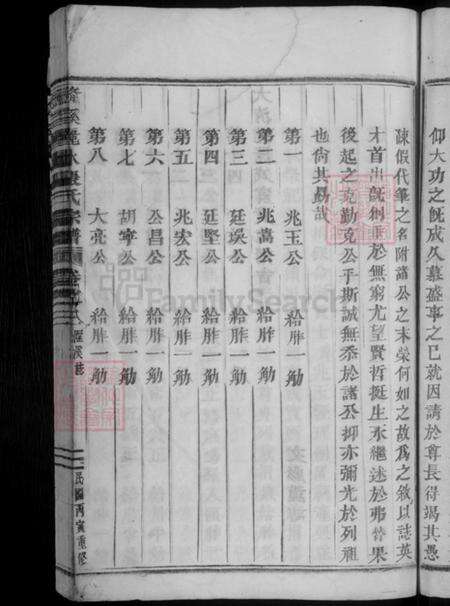 仰大功之旣成久墓盛事之已就因請於尊長得竭其愚
陳假代筆之名附諸公之末榮何如之故爲之敘以誌英
才首出旣創垂於無窮尤望賢哲挺生永繼述於弗替果
後起之克勤克公乎斯誠無忝於諸公抑亦彌光於列祖
也尙其勗哉
第一 兆玉公 給胙一觔
第二 兆嵩公 給胙一觔
第三 廷俁公 給胙一觔
第四 廷堅公 給胙一觔
第五 兆宏公 給胙一觔
第六 公昌公 給胙一觔
第七 胡寧公 給胙一觔
第八 大亮公 給胙一觔
氏宗譜 卷之八
民國丙寅重修
FamilySearch